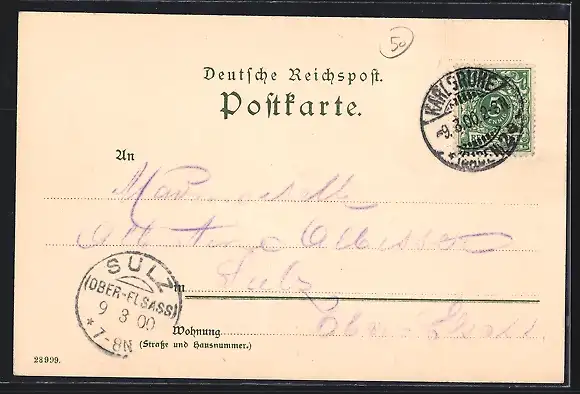 50
Deutsche Reichspost.
Postkarte.
KARLSRUHE
9.3.00.
(BADEN)
An
Mademoiselle
Sulz
in
Ober Elsass.
SULZ
(OBER-ELSASS)
9 3 00
* 7-8N
Wohnung
(Straße und Hausnummer.)
28999.